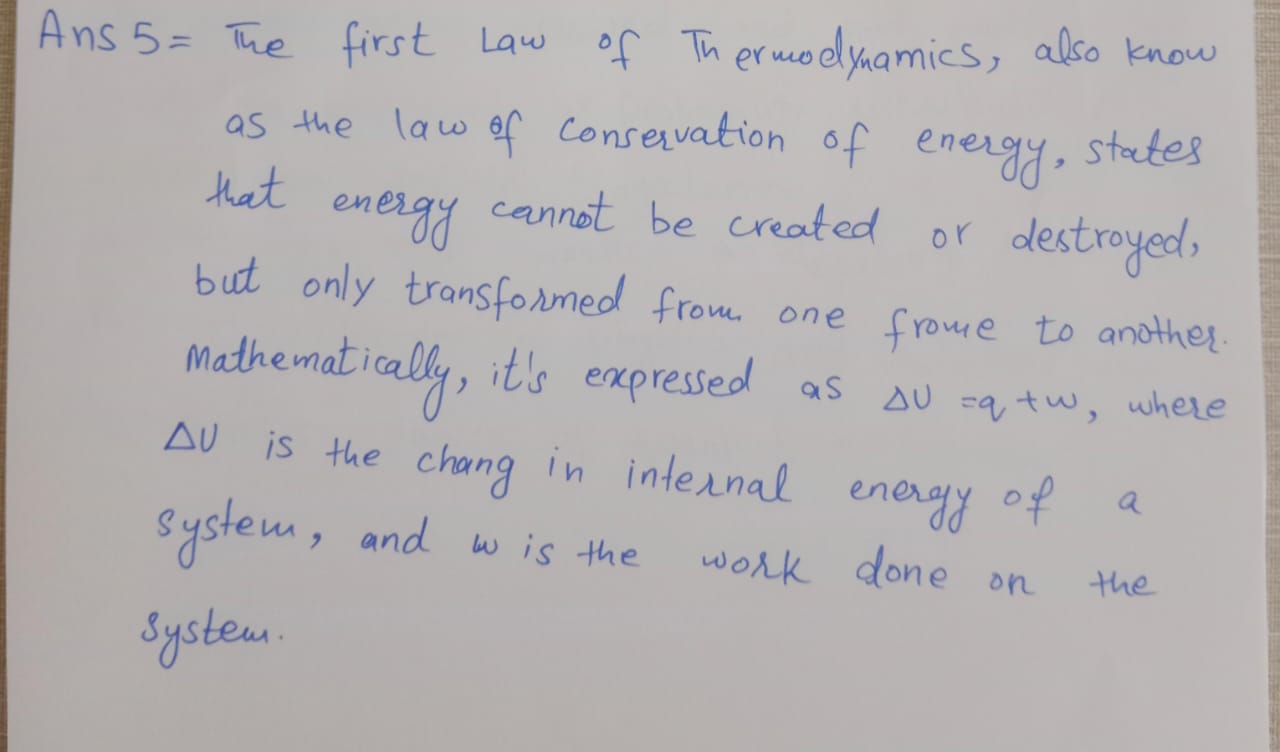 Ans 5= The first Law of Thermodynamics, also know
as the law of conservation of energy, states
that energy cannot be created or destroyed,
but only transformed from one frome to another.
Mathematically, it's expressed as ΔU =q +w, where
ΔU is the chang in internal energy of a
system, and w is the work done on the
system.